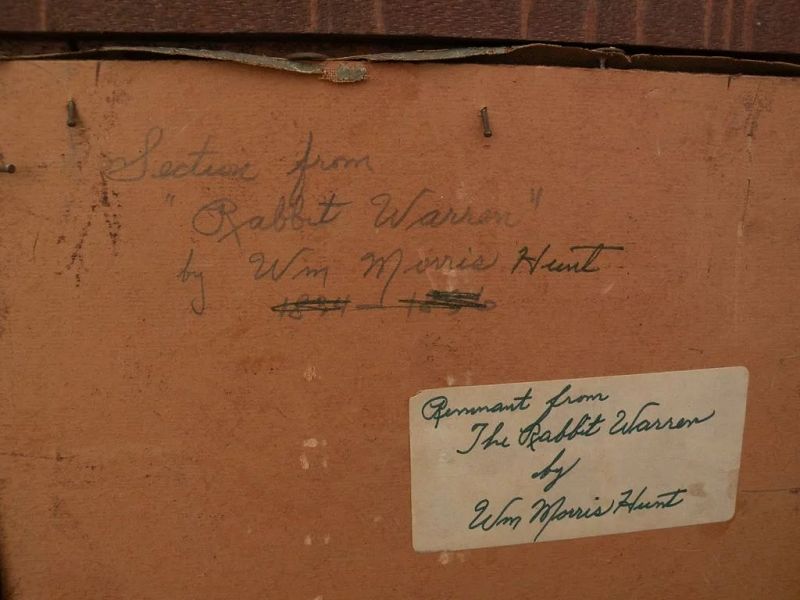 Section from
"Rabbit Warren"
by Wm Morris Hunt
Remnant from
The Rabbit Warren
by
Wm Morris Hunt